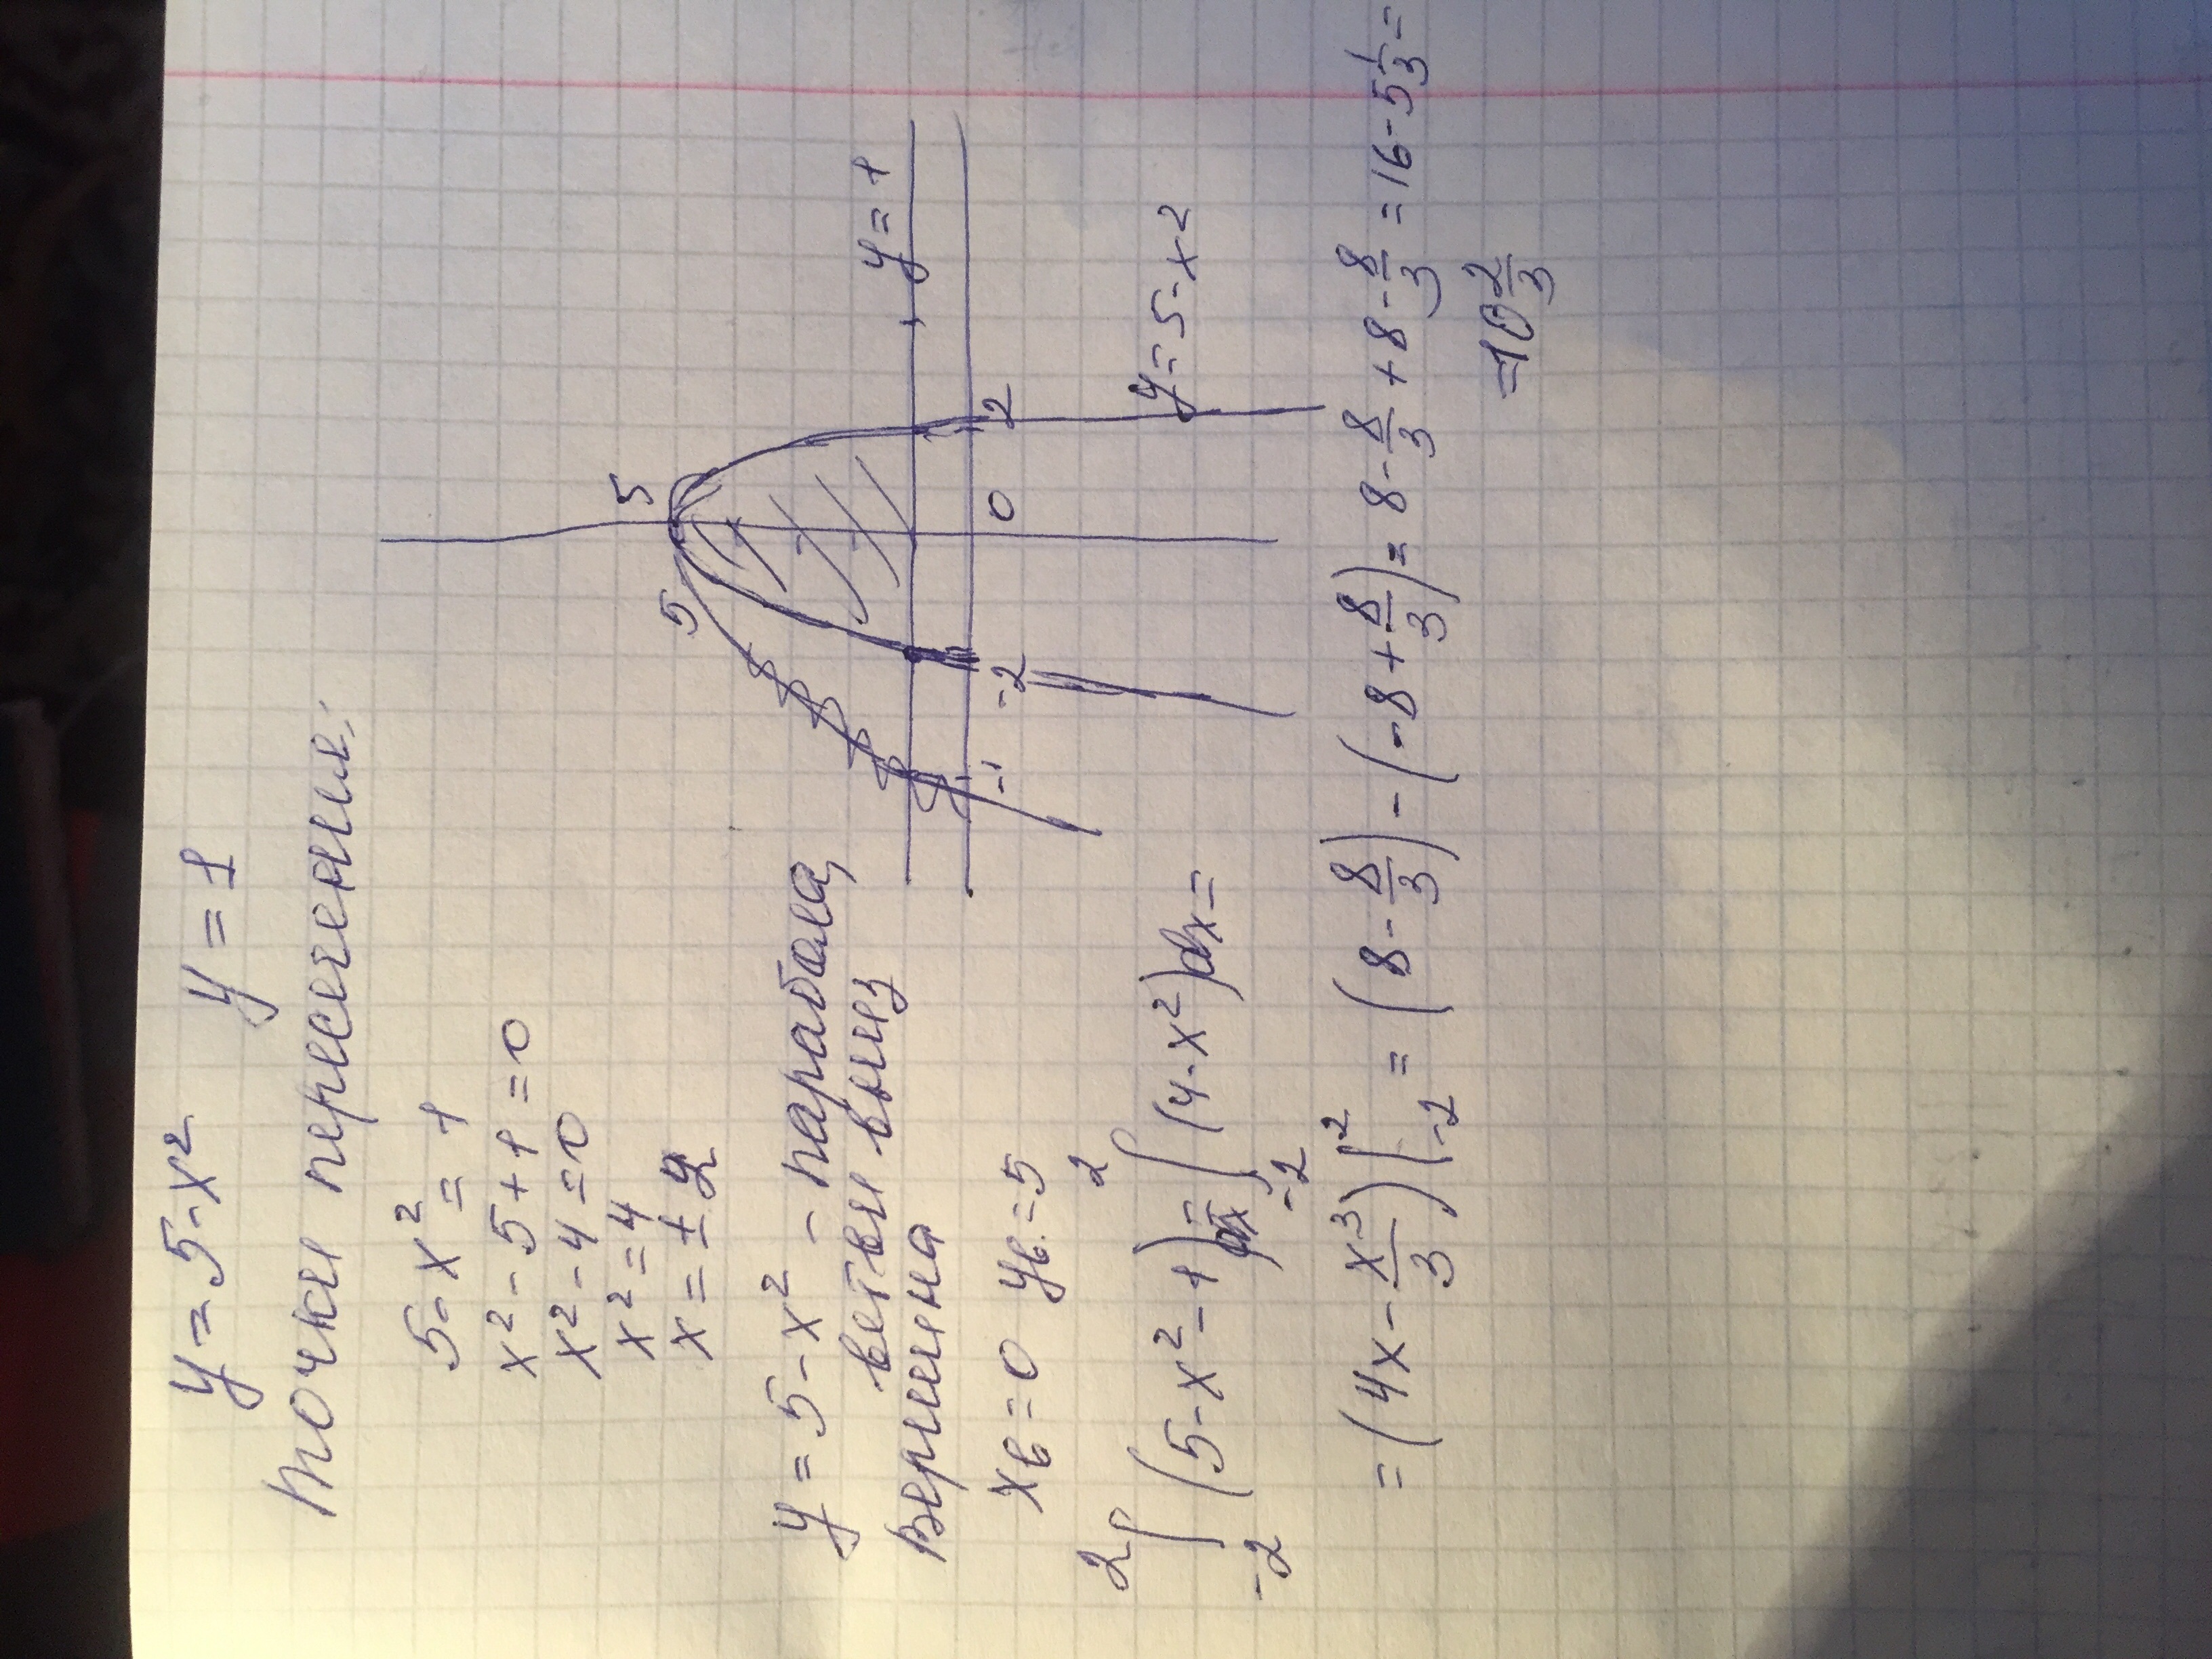 y = 5 - x² y = 1
Точки пересечения:
5 - x² = 1
x² - 5 + 1 = 0
x² - 4 = 0
x² = 4
x = ± 2
y = 5 - x² - парабола,
ветви вниз
Вершина
xв = 0 yв. = 5
∫₋₂² (5 - x² - 1)dx = ∫₋₂² (4 - x²)dx =
= (4x - x³/3)|₋₂² = (8 - 8/3) - (-8 + 8/3) = 8 - 8/3 + 8 - 8/3 = 16 - 5 1/3 =
= 10 2/3
5
5
y = 1
-1
-2
0
2
y = 5 - x²